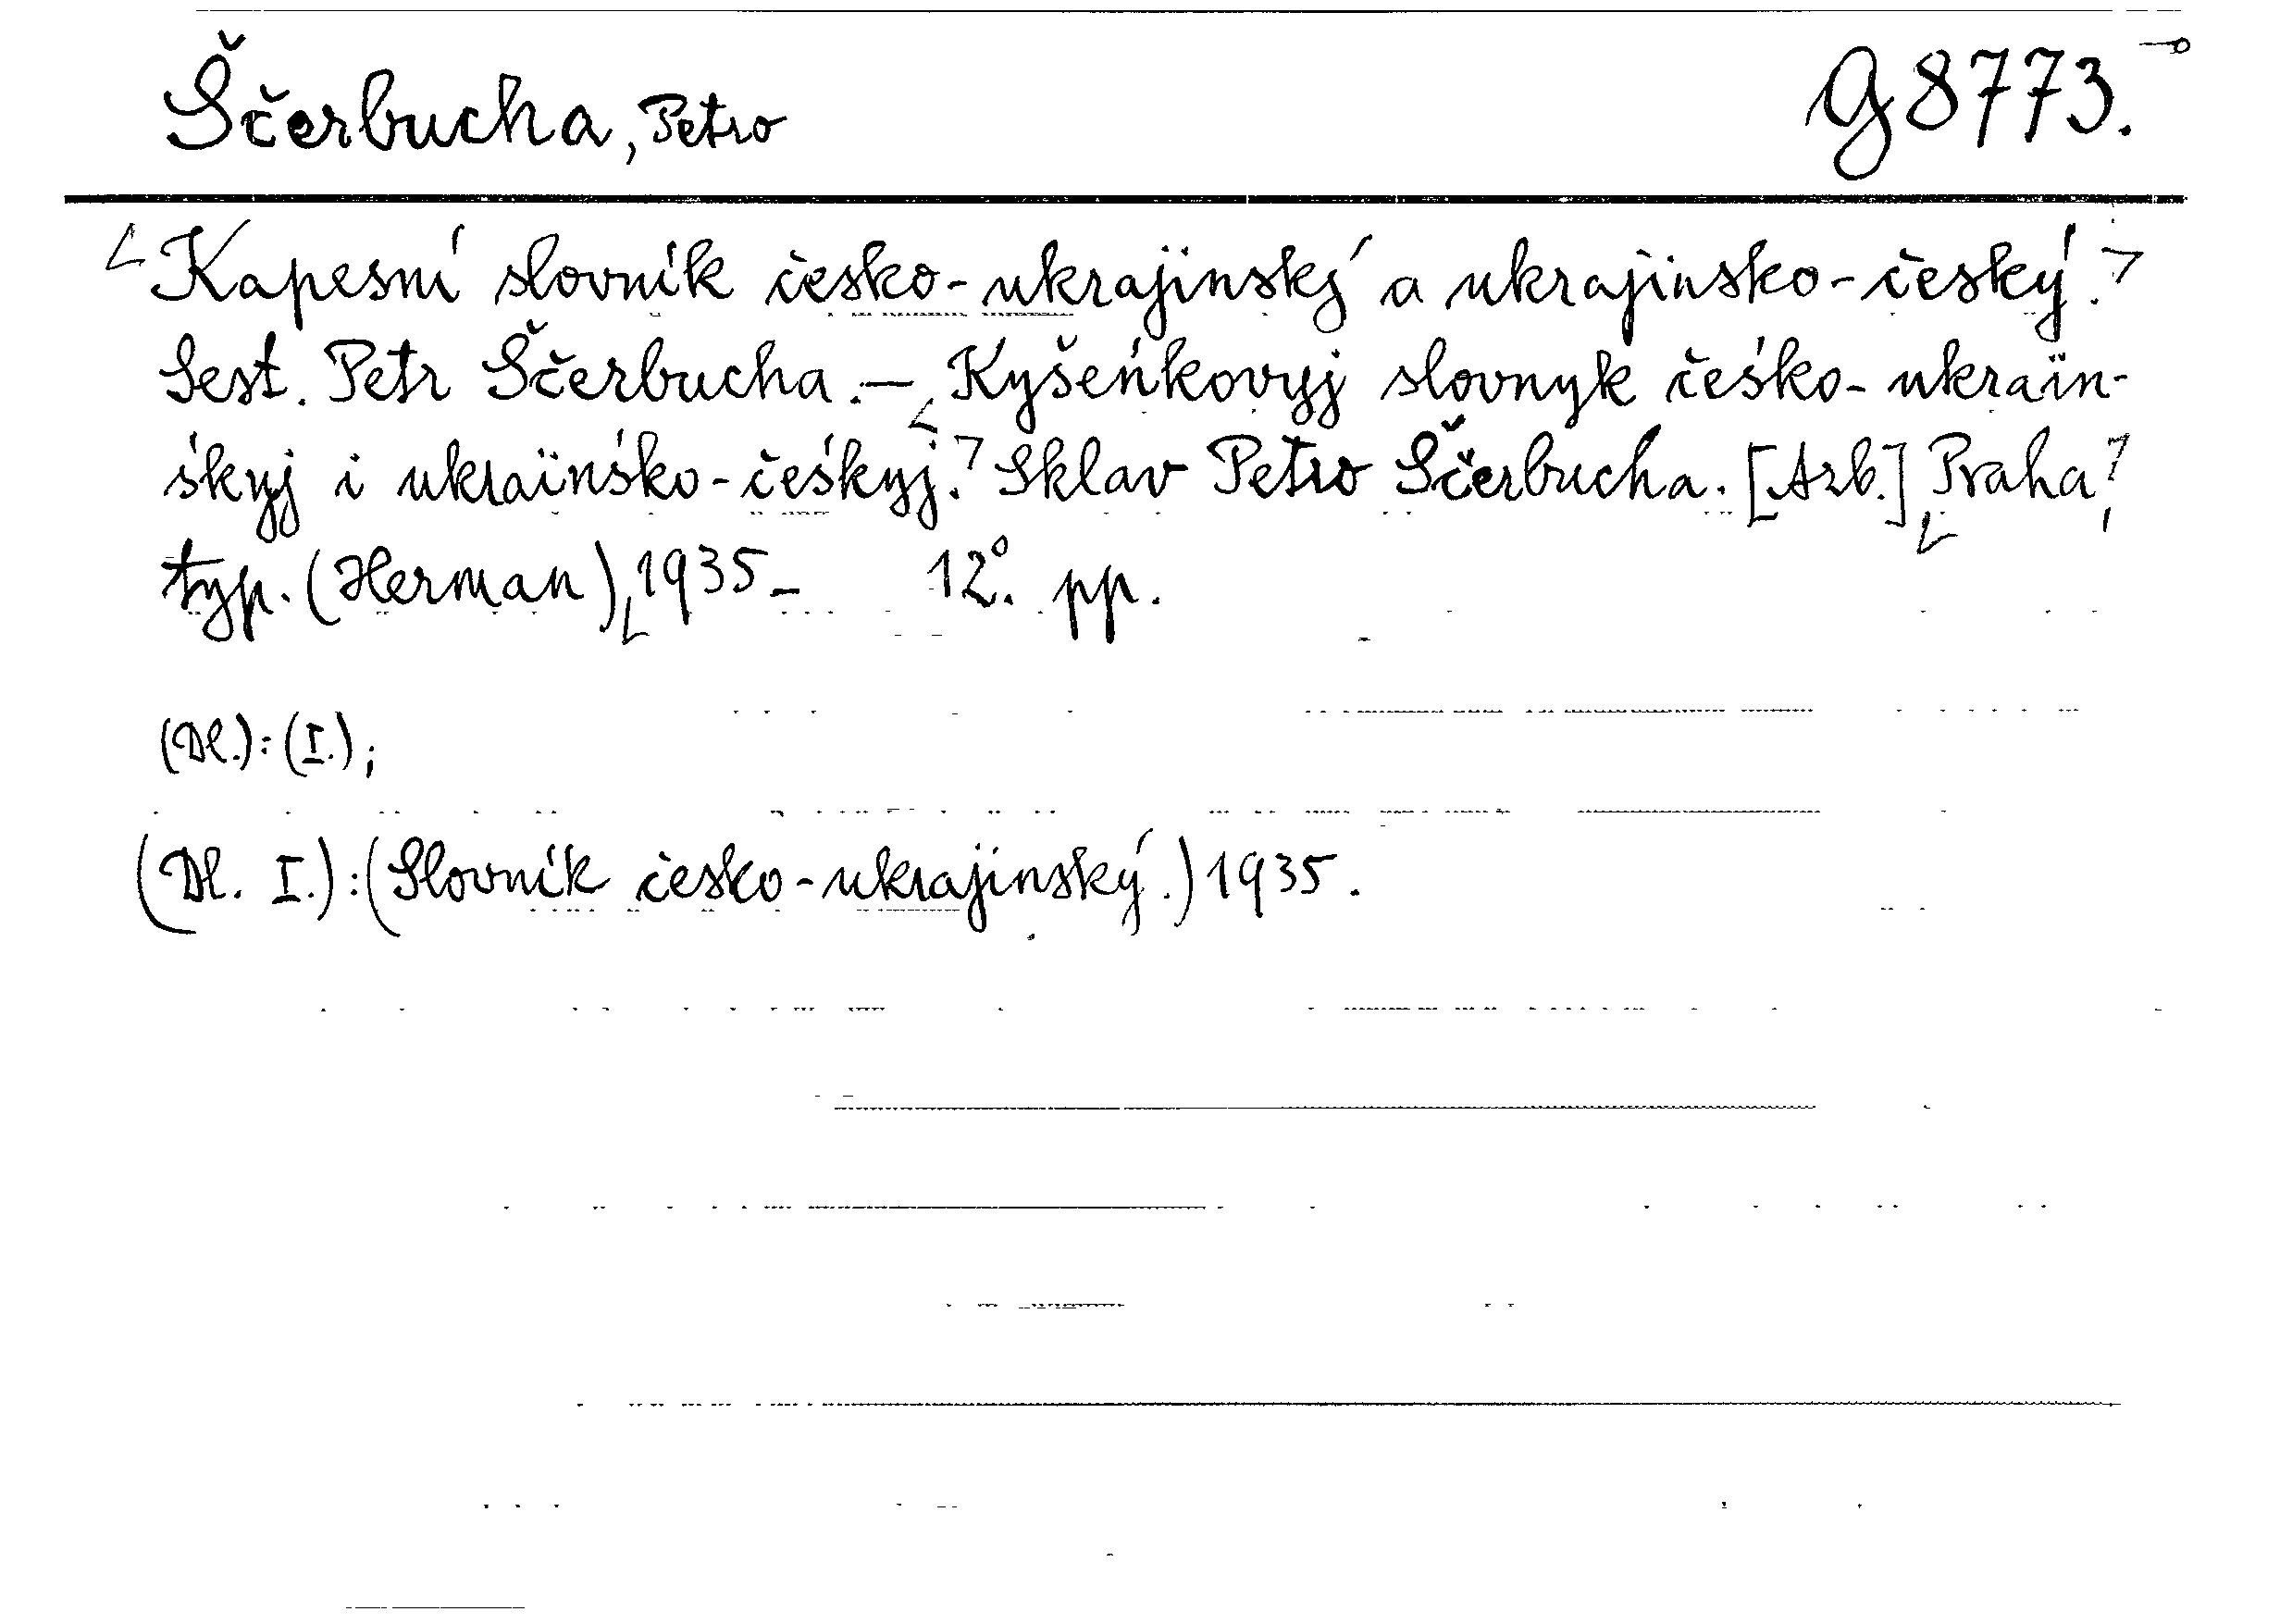 Ščerbucha, Petro
G 8773.
Kapesní slovník česko-ukrajinský a ukrajinsko-český.
Sest. Petr Ščerbucha. — Kyšeńkovyj slovnyk čeśko-ukraïn-
śkyj i ukraïnśko-čeśkyj. Sklav Petro Ščerbucha. [Azb.] Praha,
typ. (Herman) 1935- 12°. pp.
(Dl.):(I.);
(Dl. I.):(Slovník česko-ukrajinský.) 1935.